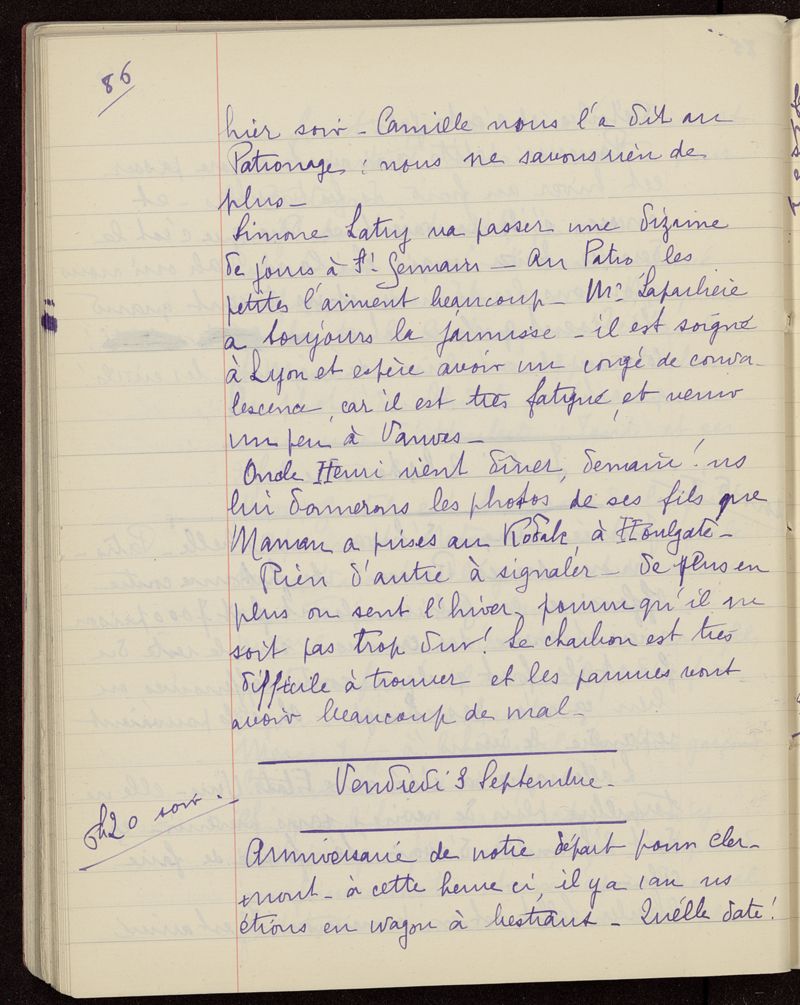 86
hier soir - Camille nous l'a dit au
Patronage : nous ne savons rien de
plus -
Simone Latry va passer une dizaine
de jours à St Germain - Au Patro les
petites l'aiment beaucoup - Mr Laparlière
a toujours la jaunisse - il est soigné
à Lyon et espère avoir un congé de conva-
lescence, car il est très fatigué, et venir
un peu à Vanves -
Oncle Henri vient dîner, demain ! ns
lui donnerons les photos de ses fils que
Maman a prises au Kodak, à Houlgate -
Rien d'autre à signaler - de plus en
plus on sent l'hiver, pourvu qu'il ne
soit pas trop dur ! Le charbon est très
difficile à trouver et les pauvres vont
avoir beaucoup de mal -
Vendredi 3 Septembre -
h20 soir.
Anniversaire de notre départ pour Cler-
mont - à cette heure ci, il y a 1 an ns
étions en wagon à bestiaux - Quelle date !